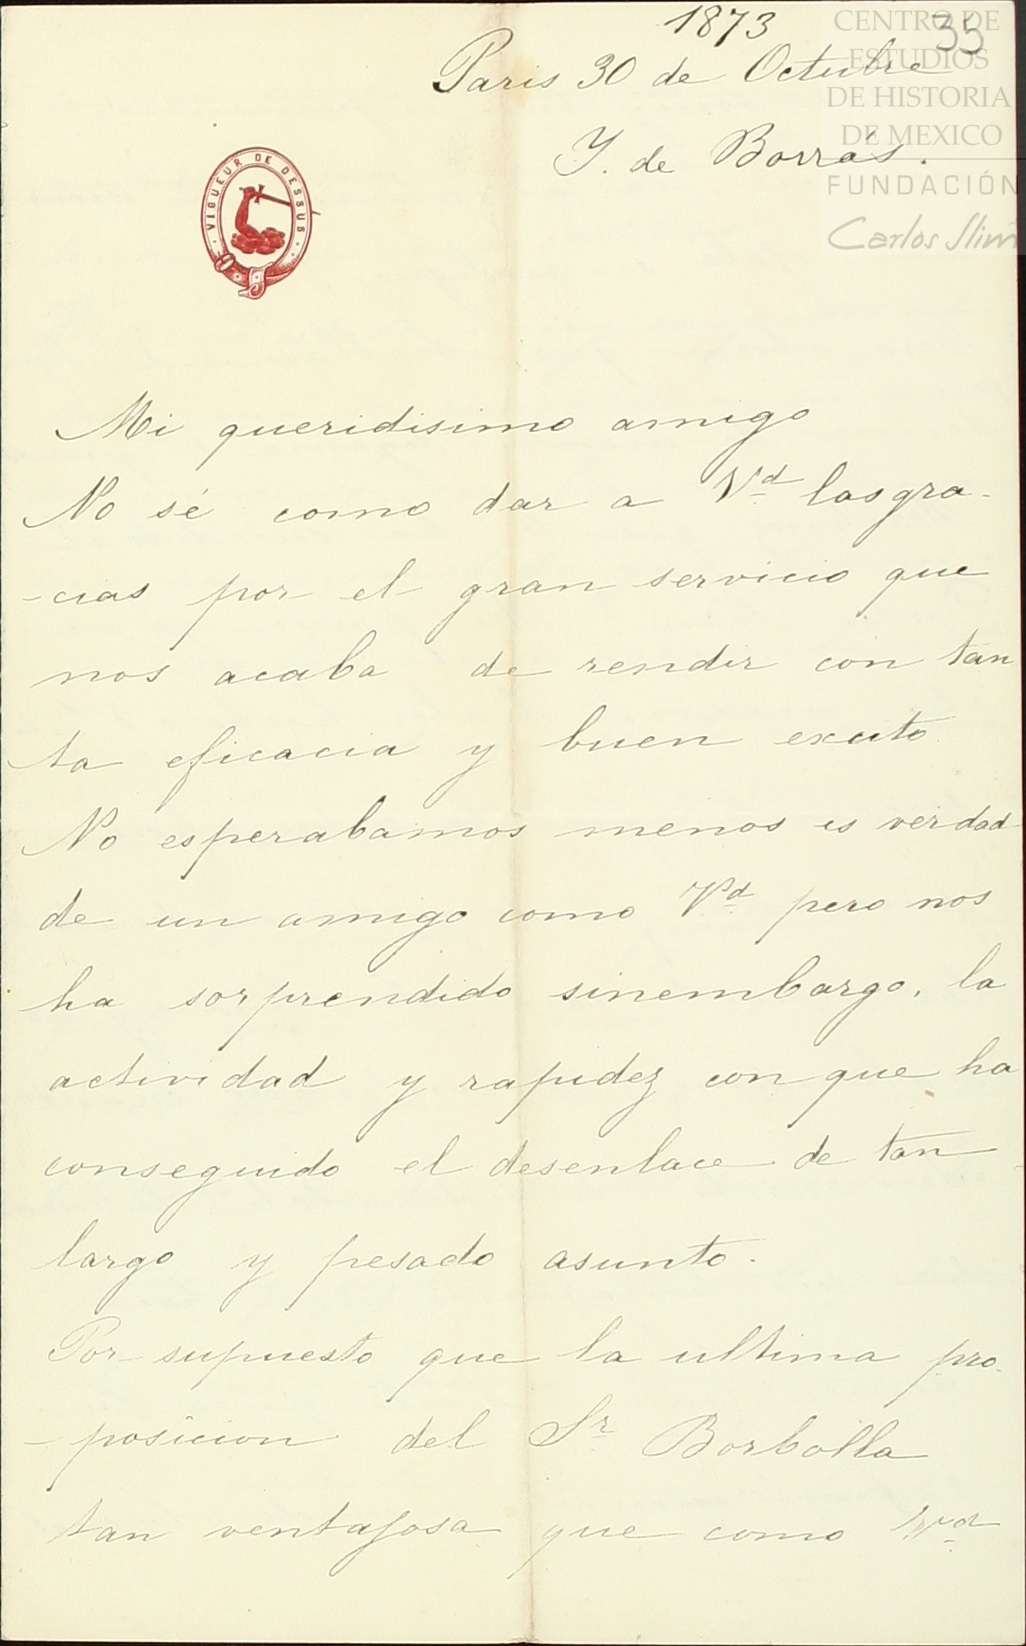 1873
35
Paris 30 de Octubre
Y. de Borrás.
CENTRO DE
ESTUDIOS
DE HISTORIA
DE MEXICO
FUNDACIÓN
Carlos Slim
VIGUEUR DE DESSUS
Mi queridisimo amigo
No sé como dar a Vd las gra-
-cias por el gran servicio que
nos acaba de rendir con tan
ta eficacia y buen exito.
No esperabamos menos es verdad
de un amigo como Vd pero nos
ha sorprendido sinembargo, la
actividad y rapidez con que ha
conseguido el desenlace de tan
largo y pesado asunto.
Por supuesto que la ultima pro-
-posicion del Sr Borbolla
tan ventajosa que como Vd